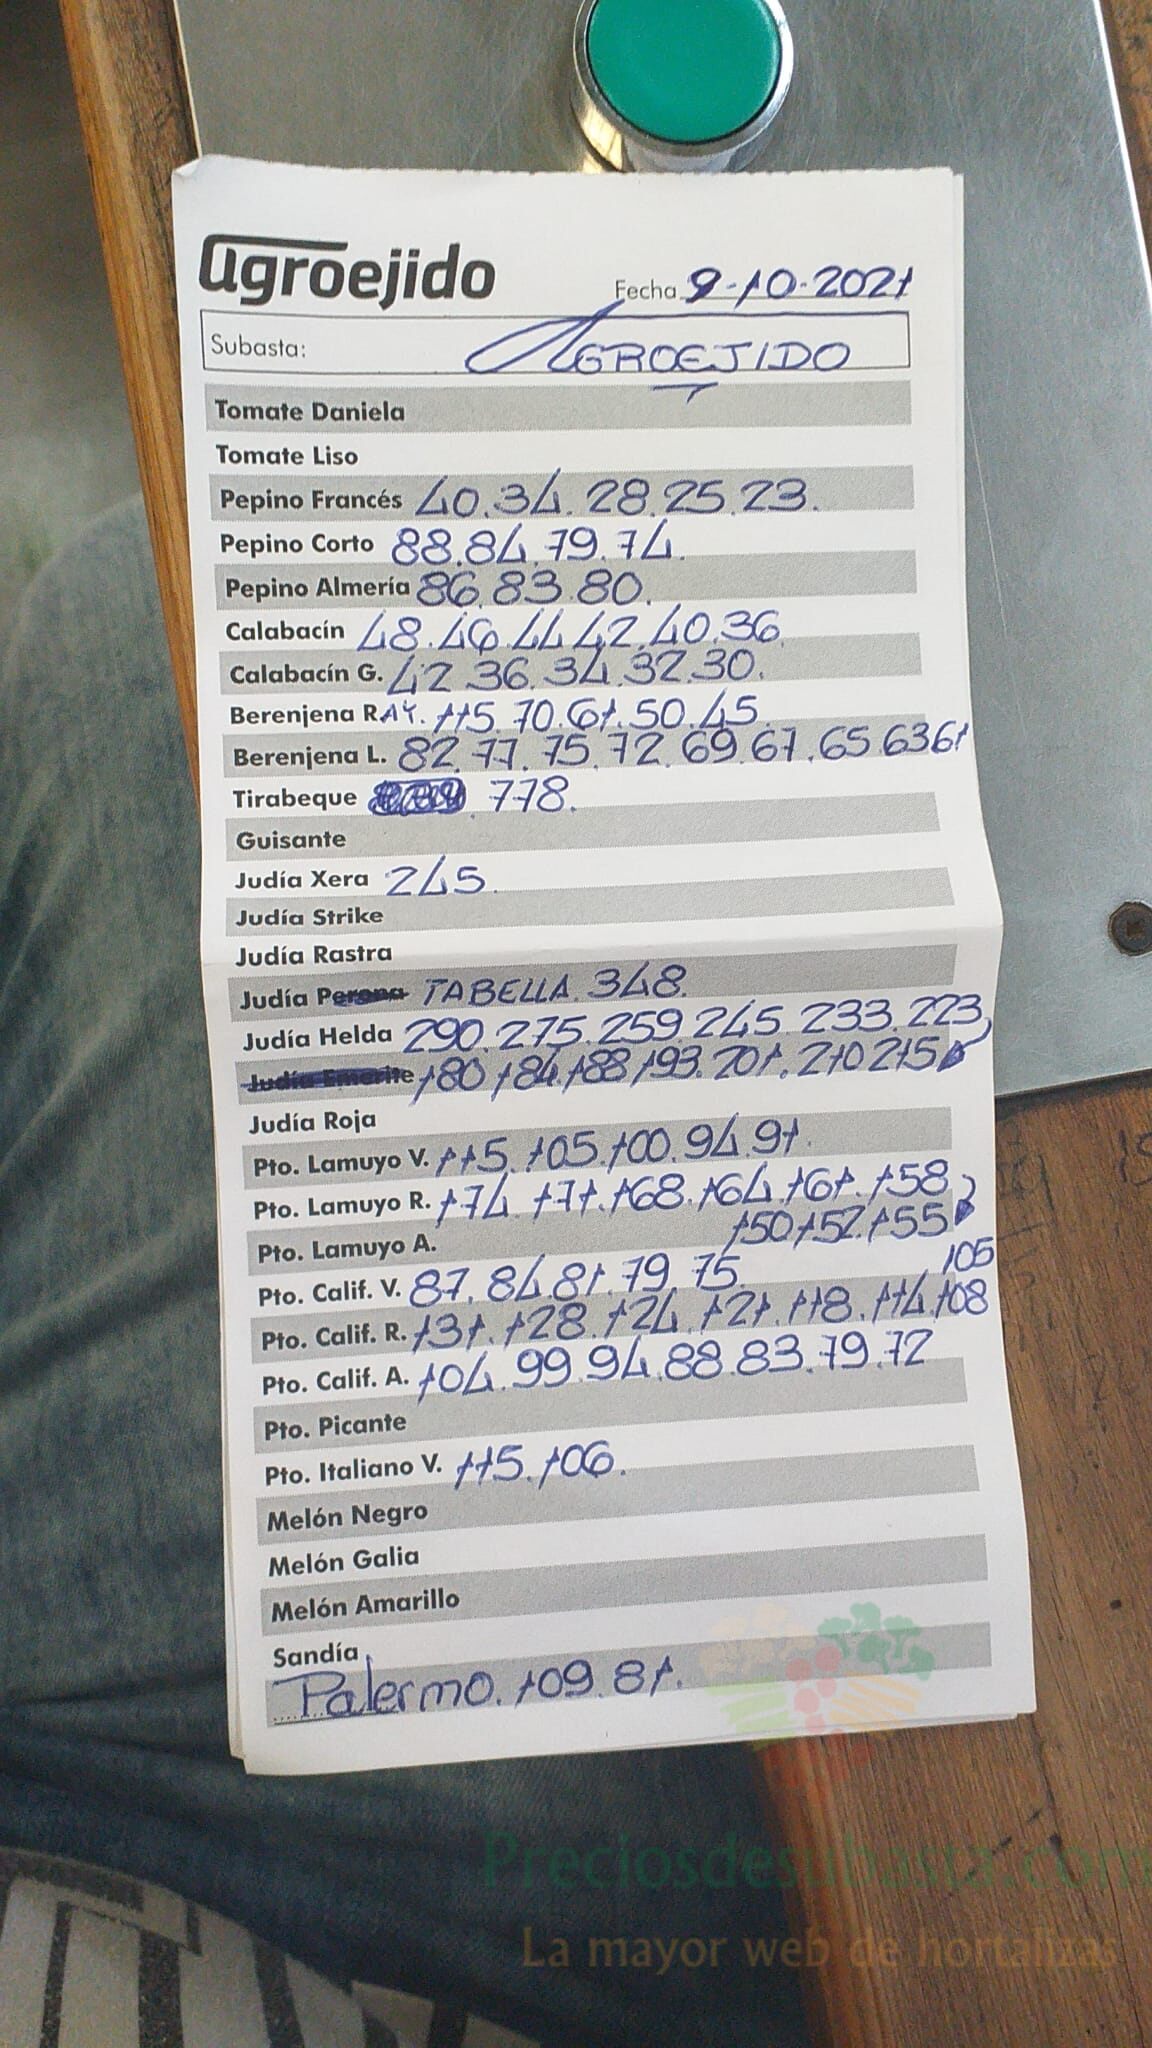 agroejido
Fecha 9-10-2021
Subasta: AGROEJIDO
Tomate Daniela
Tomate Liso
Pepino Francés 40.34.28.25.23.
Pepino Corto 88.84.79.74.
Pepino Almería 86.83.80.
Calabacín 48.46.44.42.40.36.
Calabacín G. 42.36.34.32.30.
Berenjena RAY. 115.70.61.50.45.
Berenjena L. 82.77.75.72.69.67.65.63 61
Tirabeque 778.
Guisante
Judía Xera 245.
Judía Strike
Judía Rastra
Judía Perona TABELLA.348.
Judía Helda 290.275.259.245.233.223
Judía Emerite 180.184.188.193.201.210 215
Judía Roja
Pto. Lamuyo V. 115.105.100.94.91.
Pto. Lamuyo R. 174.171.168.164.161.158
Pto. Lamuyo A. 150.152.155
Pto. Calif. V. 87.84.81.79.75. 105
Pto. Calif. R. 131.128.124.121.118.114.108
Pto. Calif. A. 104.99.94.88.83.79.72
Pto. Picante
Pto. Italiano V. 115.106.
Melón Negro
Melón Galia
Melón Amarillo
Sandía
Palermo.109.81.
Preciosdesubasta.com
La mayor web de hortalizas